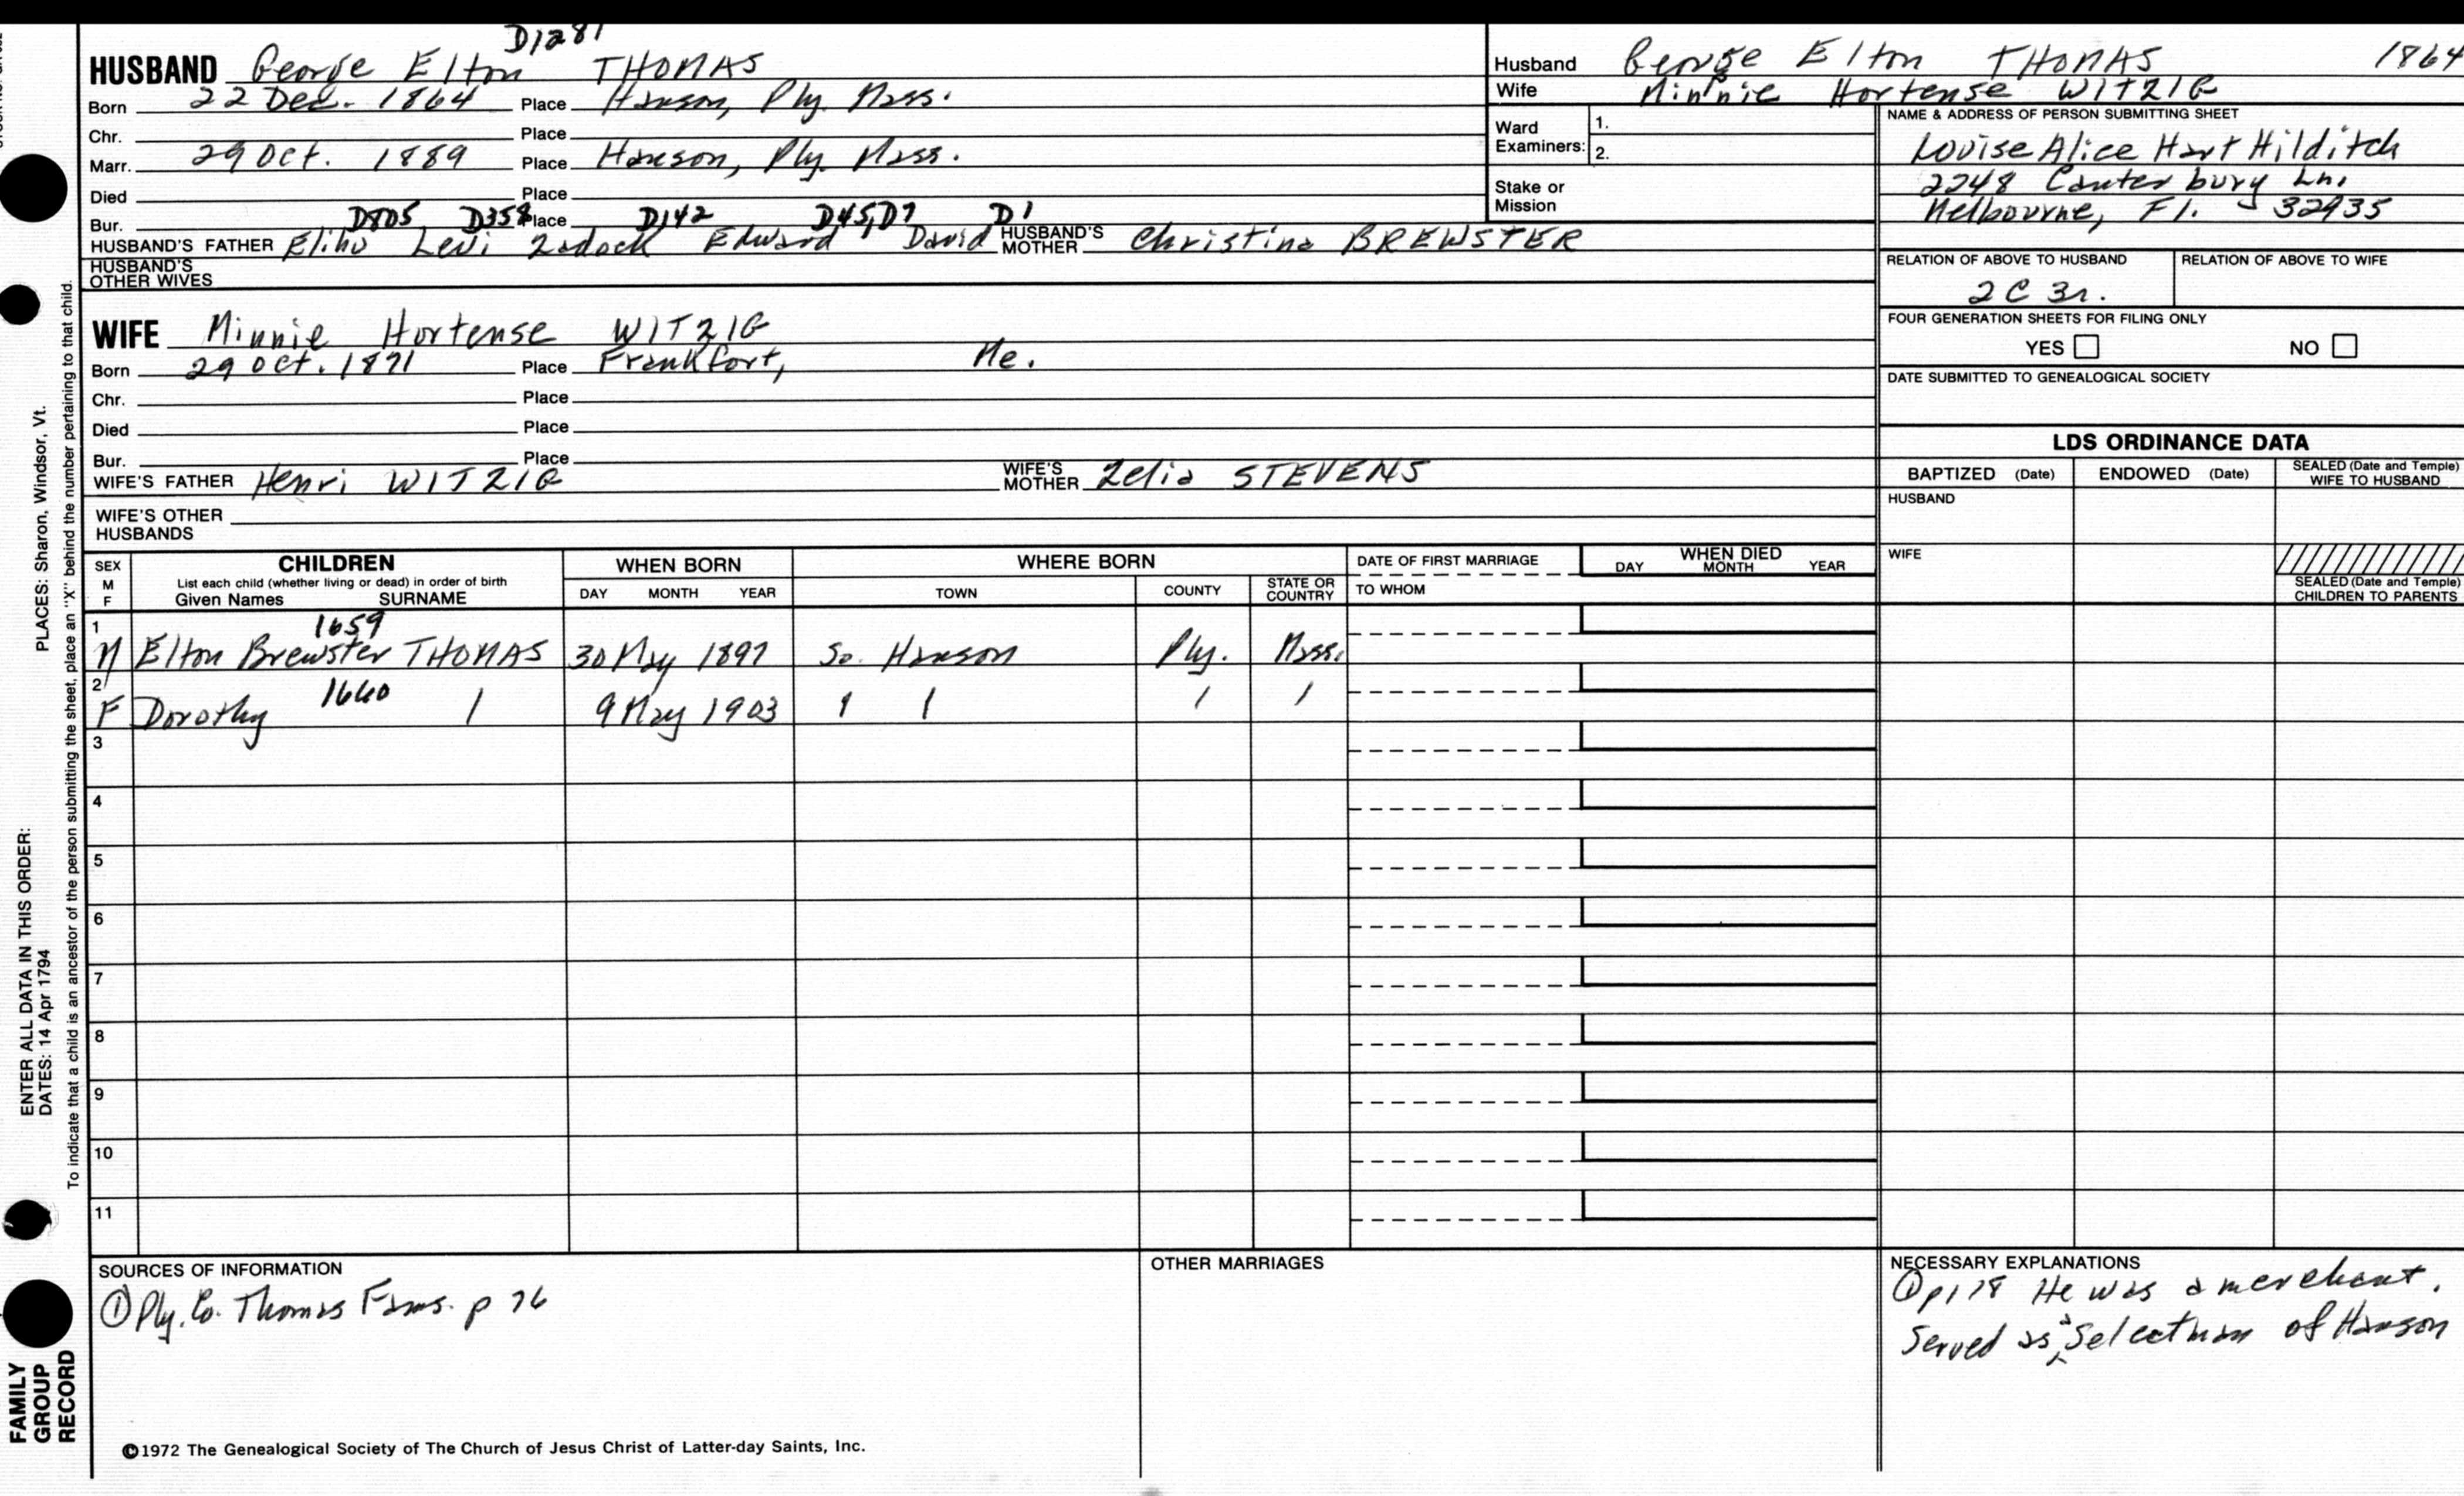 D1281
HUSBAND George Elton THOMAS
Born 22 Dec. 1864 Place Hanson, Ply. Mass.
Chr. Place
Marr. 29 Oct. 1889 Place Hanson, Ply. Mass.
Died Place
Bur. D805 D358 Place D142 D45, D7 D1
HUSBAND'S FATHER Elihu Levi Zadock Edward David HUSBAND'S MOTHER Christina BREWSTER
HUSBAND'S OTHER WIVES
Husband George Elton THOMAS 1864
Wife Minnie Hortense WITZIG
Ward Examiners: 1.
2.
Stake or Mission
NAME & ADDRESS OF PERSON SUBMITTING SHEET
Louise Alice Hart Hilditch
2248 Canterbury Ln.
Melbourne, Fl. 32935
RELATION OF ABOVE TO HUSBAND RELATION OF ABOVE TO WIFE
2C 3r.
FOUR GENERATION SHEETS FOR FILING ONLY
YES NO
DATE SUBMITTED TO GENEALOGICAL SOCIETY
WIFE Minnie Hortense WITZIG
Born 29 Oct. 1871 Place Frankfort, Me.
Chr. Place
Died Place
Bur. Place
WIFE'S FATHER Henri WITZIG WIFE'S MOTHER Zelia STEVENS
WIFE'S OTHER HUSBANDS
LDS ORDINANCE DATA
BAPTIZED (Date) ENDOWED (Date) SEALED (Date and Temple) WIFE TO HUSBAND
HUSBAND
WIFE
SEALED (Date and Temple) CHILDREN TO PARENTS
SEX M F CHILDREN WHEN BORN WHERE BORN DATE OF FIRST MARRIAGE WHEN DIED
List each child (whether living or dead) in order of birth
Given Names SURNAME DAY MONTH YEAR TOWN COUNTY STATE OR COUNTRY TO WHOM DAY MONTH YEAR
1 1659
M Elton Brewster THOMAS 30 May 1897 So. Hanson Ply. Mass.
2 1660
F Dorothy 9 May 1903
3
4
5
6
7
8
9
10
11
SOURCES OF INFORMATION
① Ply. Co. Thomas Fams. p 76
OTHER MARRIAGES
NECESSARY EXPLANATIONS
① p178 He was a merchant.
Served as a Selectman of Hanson
©1972 The Genealogical Society of The Church of Jesus Christ of Latter-day Saints, Inc.
FAMILY GROUP RECORD
ENTER ALL DATA IN THIS ORDER:
DATES: 14 Apr 1794 PLACES: Sharon, Windsor, Vt.
To indicate that a child is an ancestor of the person submitting the sheet, place an "X" behind the number pertaining to that child.